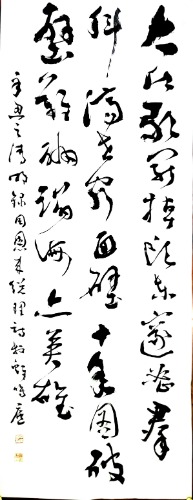 大江歌罢掉头东邃密群
科济世穷面壁十年图破
壁难酬蹈海亦英雄
辛丑之清明录周恩来总理诗